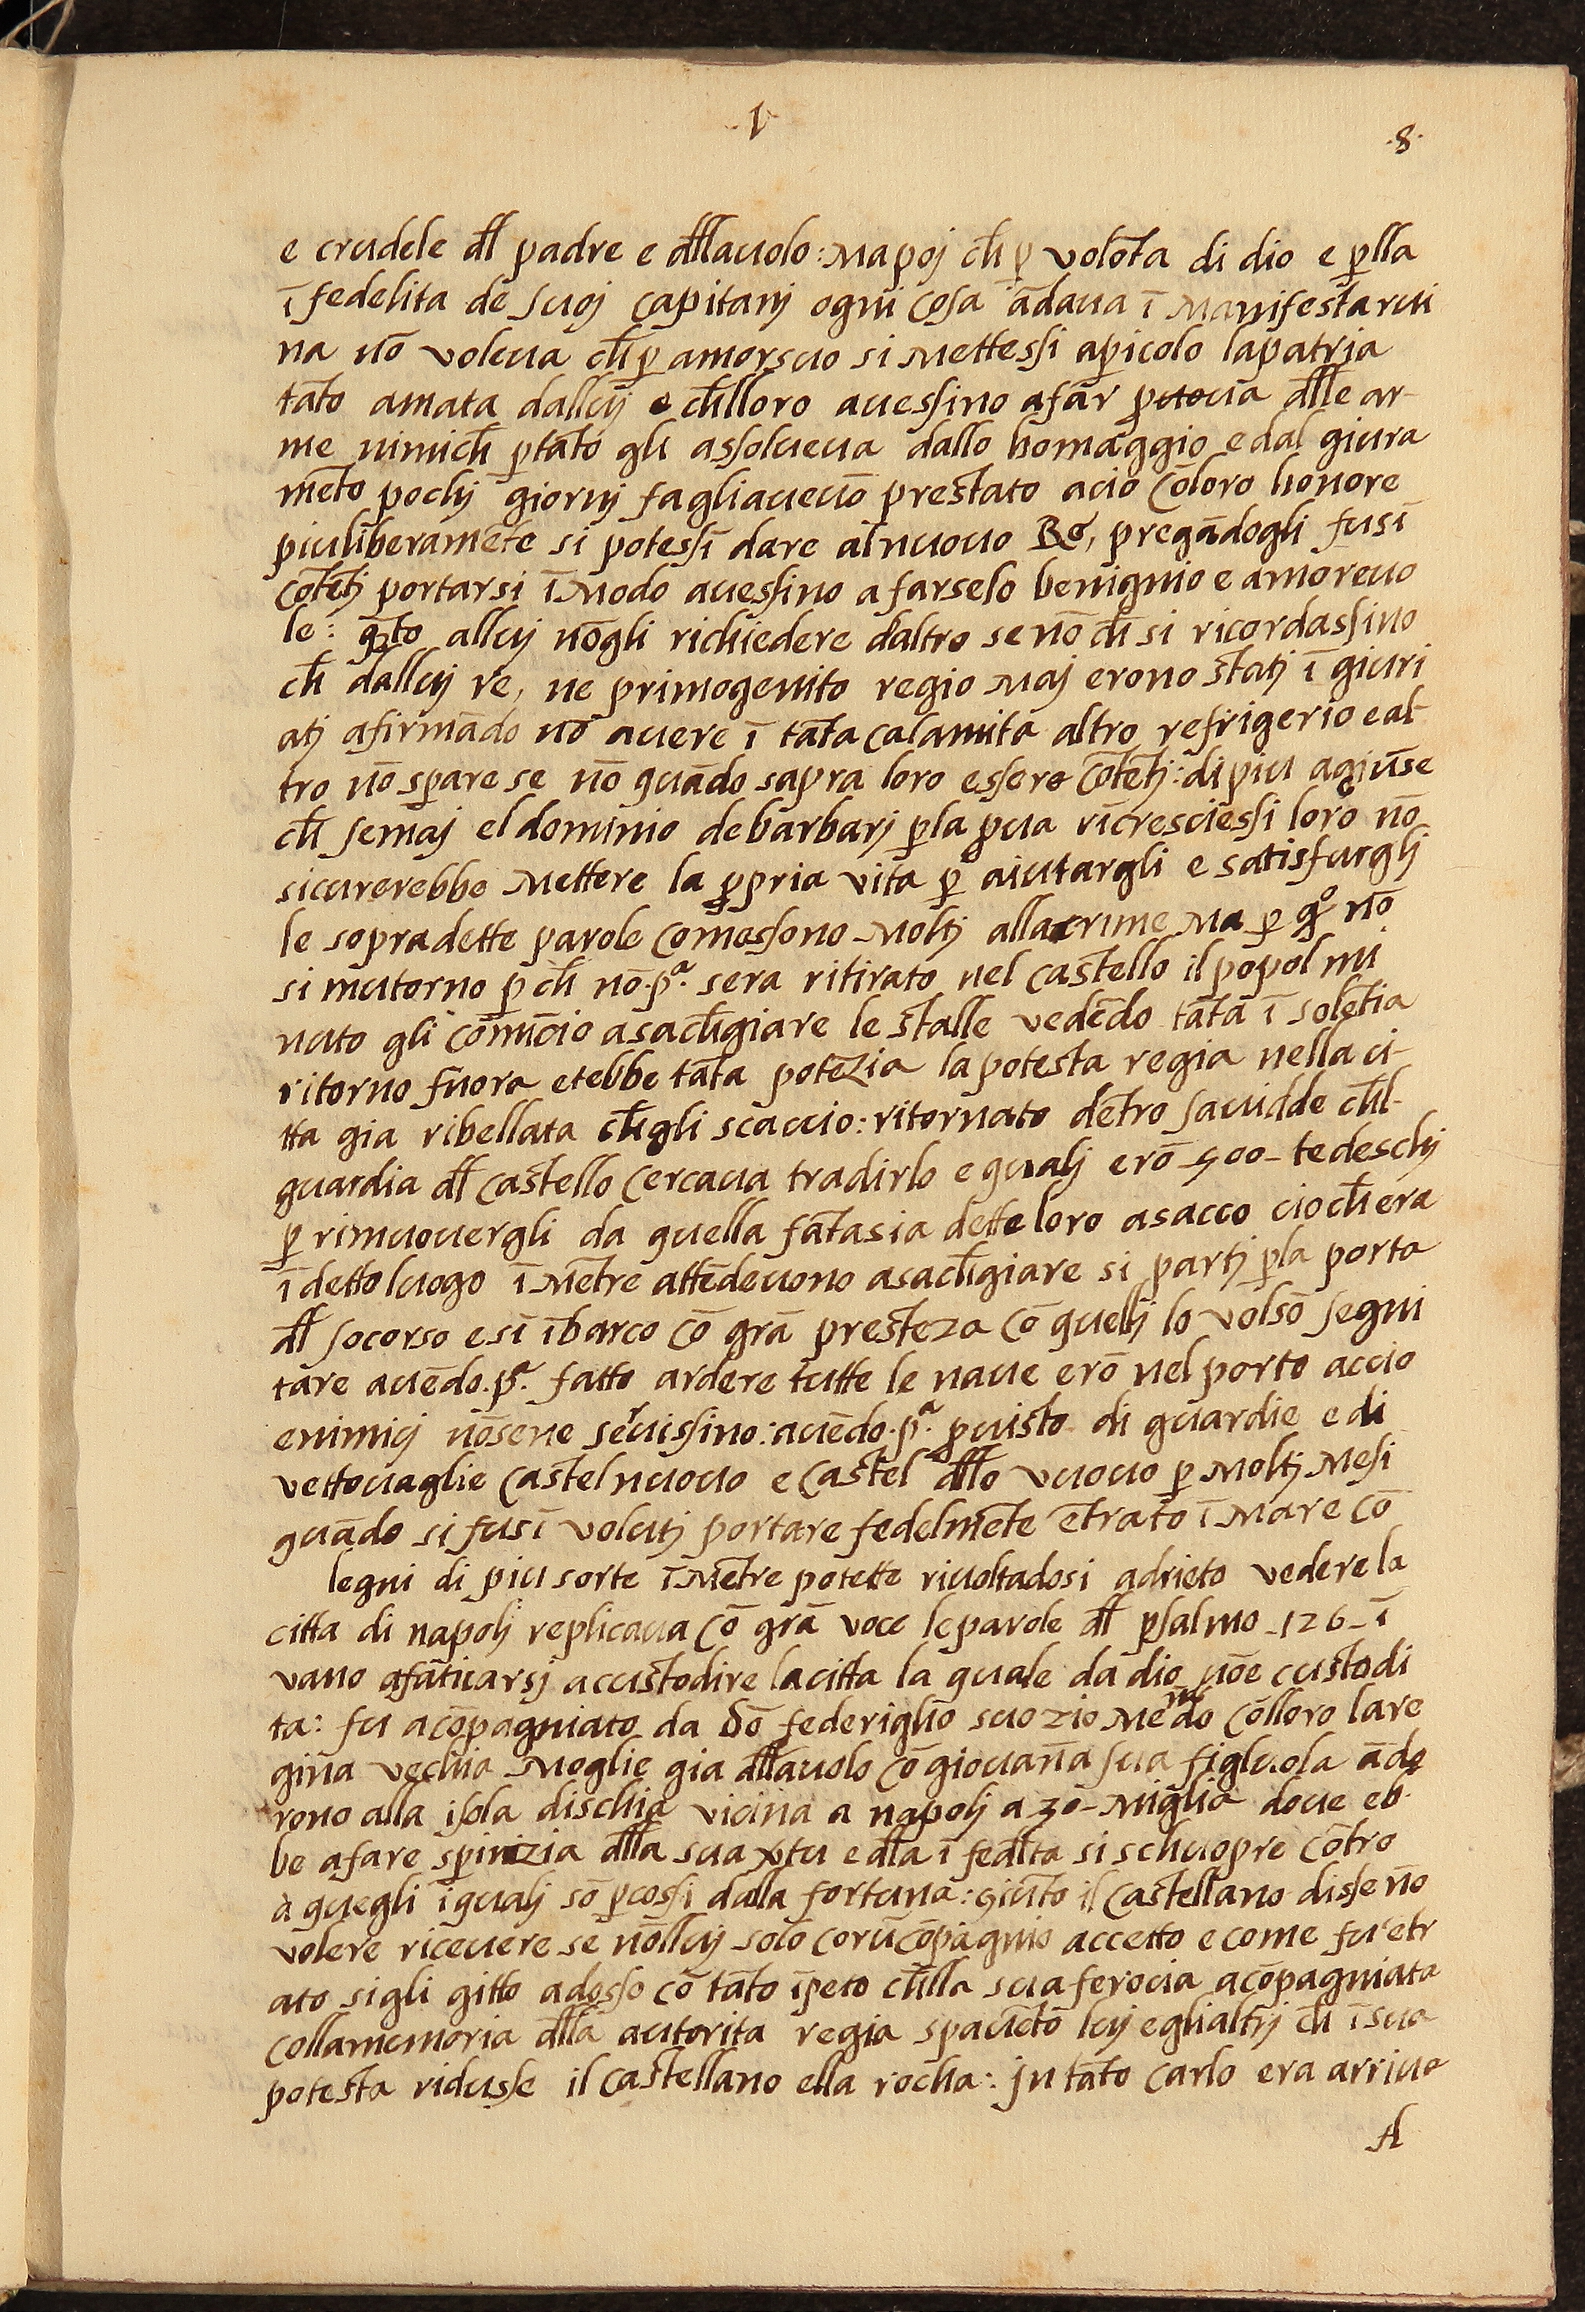 ·1·
·8·
e crudele dl̄ padre e dl̄lauolo: Ma poj ch̄ ꝑ volōta di dio e ꝑlla
ī fedelita de suoj capitanj ogni cosa ādaua ī Manifesta rui
na nō voleua ch̄ ꝑ amor suo si Mettessi a ꝑicolo la patria
tāto amata dalluj e ch̄lloro auessino afar pruoua dl̄le ar-
me nimich̄ ꝑtāto gli assolueua dallo homaggio e dal giura
mēto pochj giornj fa gliaueuō prestato acio cōloro honore
piu liberamēte si potessi dare al nuouo Re, pregādogli fusī
cōtētj portarsi ī Modo auessino a farselo benignio e amoreuo
le: q̄to alluj nō gli richiedere daltro se nō ch̄ si ricordassino
ch̄ dalluj re, ne primogenito regio Maj erono statj ī giuri
atj afirmādo nō auere ī tāta calamita altro refrigerio e al-
tro nō sꝑare se nō quādo sapra loro essere cōtētj: di piu agiūse
ch̄ se maj el dominio de barbarj ꝑ la ꝓua rīcresciessi loro nō
sicurerebbe Mettere la ꝓpria vita ꝑ aiutargli e satisfargli
le sopra dette parole comossono Moltj alla crime Ma ꝑ q̄º nō
si mutorno ꝑ ch̄ nō .pª. sera ritirato nel castello il popol mi
nuto gli comīcio a sach̄giare le stalle vedēdo tāta ī solētia
ritorno fuora et ebbe tāta potēzia la potesta regia nella ci-
tta gia ribellata ch̄gli scaccio: ritornato dētro sauidde ch̄l-
guardia dl̄ castello cercaua tradirlo e qualj erō -500- tedeschj
ꝑ rimuouergli da quella fātasia dette loro a sacco cio ch̄ era
ī detto luogo ī Mētre attēdeuono a sach̄giare si partj ꝑla porta
dl̄ socorso e sī ībarco cō grā presteza cō quellj lo volsō segui
tare auēdo .pª. fatto ardere tutte le naue erō nel porto accio
e nimicj nōsene seruissino: auēdo .pª. ꝓuisto di guardie e di
vettouaglie castel nuouo e castel dl̄lo vuouo ꝑ Moltj Mesi
quādo si fusī volutj portare fedelmēte ētrato ī Mare cō
legni di piu sorte ī Mētre potette riuoltādosi adrieto vedere la
citta di napolj replicaua cō grā voce le parole dl̄ psalmo -126- ī
vano afaticarsj accustodire la citta la quale da dio nōe custodi
ta: fu acōpagniato da dō federigho suo zio Menādo cōlloro la re
gina vechia Moglie gia dl̄lauolo cō giouāna sua figluola āda
rono alla isola dischia vicina a napolj a 30- Miglia doue eb-
be afare sꝑinzia dl̄la sua v̄tu e dl̄la ī fedl̄ta si schuopre cōtro
à quegli i qualj sō ꝑcossi dalla fortuna: giūto il castellano disse nō
volere riceuere se nōlluj solo cor ū cōpagnio accetto e come fu ētr
ato sigli gitto adosso cō tāto īpeto ch̄lla sua ferocia acōpagniata
colla memoria dl̄la autorita regia spauētō luj e gli altrj ch̄ ī sua
potesta ridusse il castellano ella rocha: In tāto carlo era arriua
A